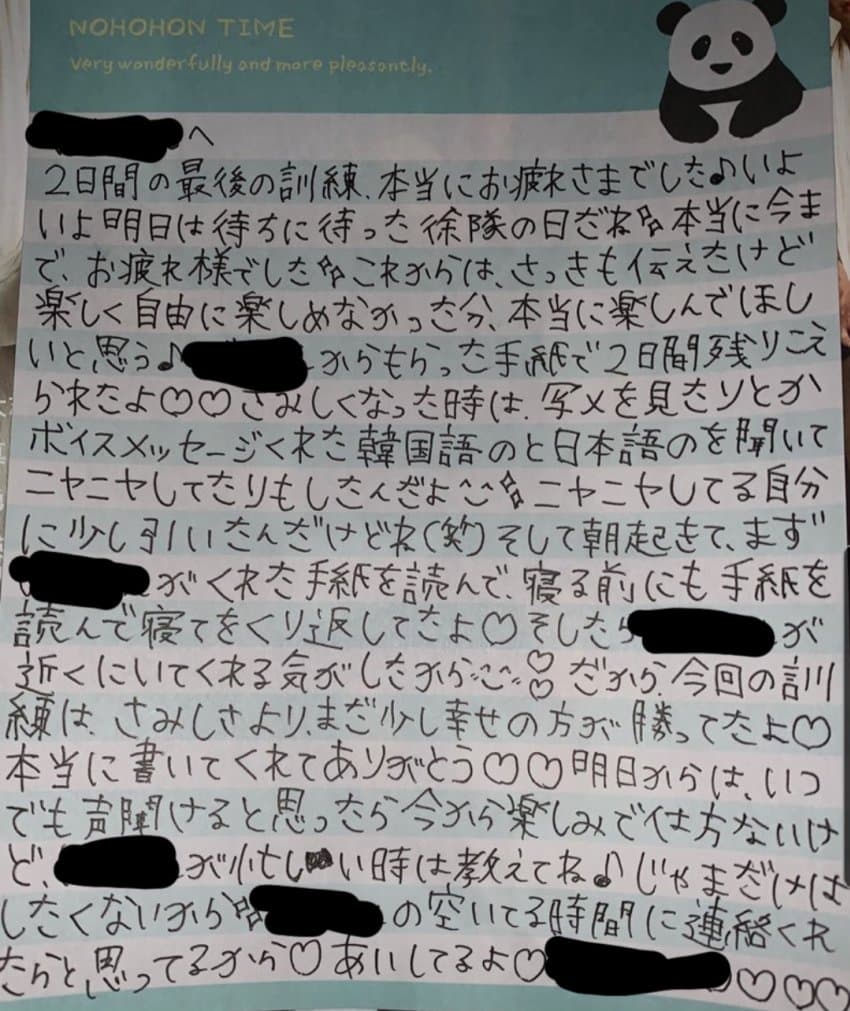 NOHOHON TIME
Very wonderfully and more pleasantly.
へ
2日間の最後の訓練、本当にお疲れさまでした♪いよ
いよ明日は待ちに待った徐隊の日だね 本当に今ま
で、お疲れ様でした これからは、さっきも伝えたけど
楽しく自由に楽しめなかった分、本当に楽しんでほし
いと思う♪ からもらった手紙で2日間残りこえ
られたよ♡♡さみしくなった時は、写メを見たりとか
ボイスメッセージくれた韓国語のと日本語のを聞いて
ニヤニヤしてたりもしたんだよ^^ ニヤニヤしてる自分
に少し引いたんだけどね(笑)そして朝起きて、まず
がくれた手紙を読んで、寝る前にも手紙を
読んで寝てをくり返してたよ♡そしたら が
近くにいてくれる気がしたから ♡♡だから、今回の訓
練は、さみしさより、まだ少し幸せの方が勝ってたよ♡
本当に書いてくれてありがとう♡♡明日からは、いつ
でも声聞けると思ったら今から楽しみで仕方ないけ
ど、 が忙しい時は教えてね♪じゃまだけは
したくないから の空いてる時間に連絡くれ
たらと思ってるから♡あいしてるよ♡ ♡♡♡